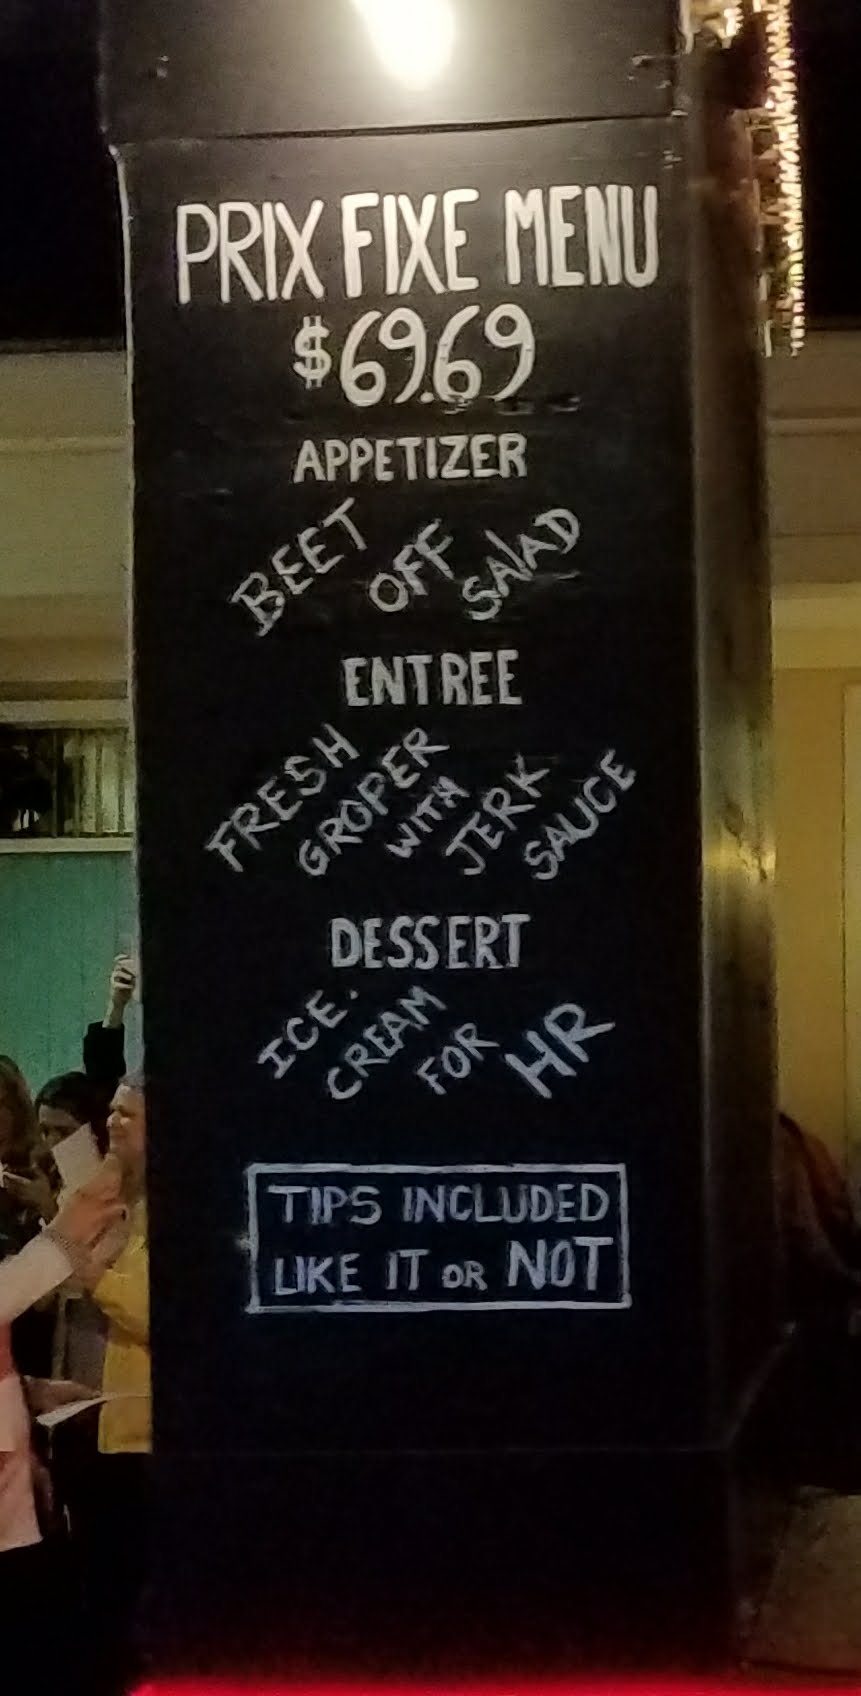 PRIX FIXE MENU
$69.69
APPETIZER
BEET OFF SALAD
ENTREE
FRESH GROPER WITH JERK SAUCE
DESSERT
ICE. CREAM FOR HR
TIPS INCLUDED
LIKE IT OR NOT